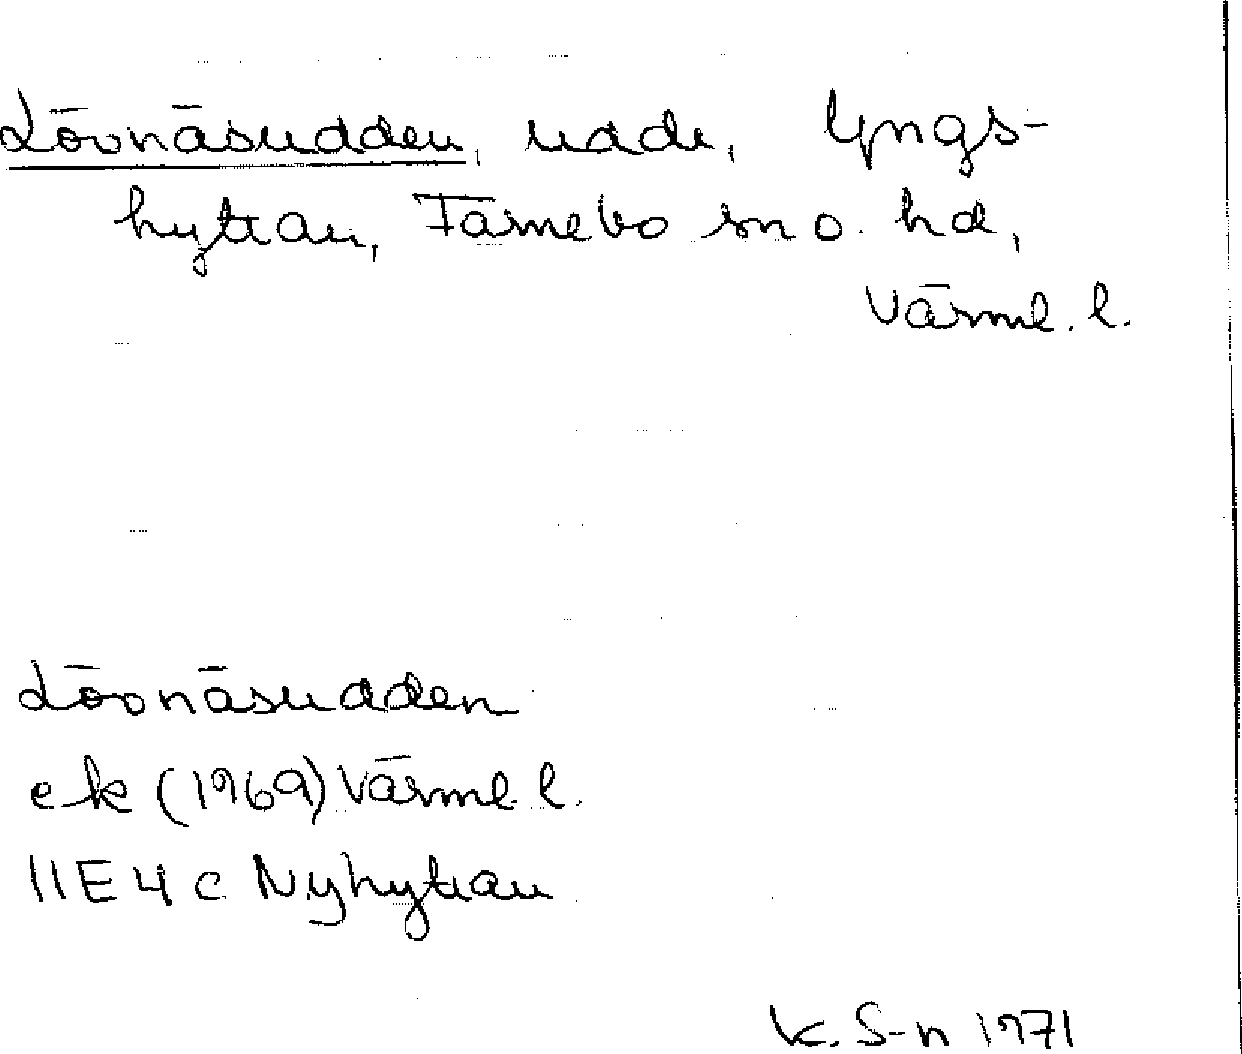 Lövnäsudden, udde, Lyngs-
hyttan, Färnebo sn o. hd,
Värml. l.
Lövnäsudden
ek (1969) Värml. l.
11E 4c Nyhyttan
K. S-n 1971